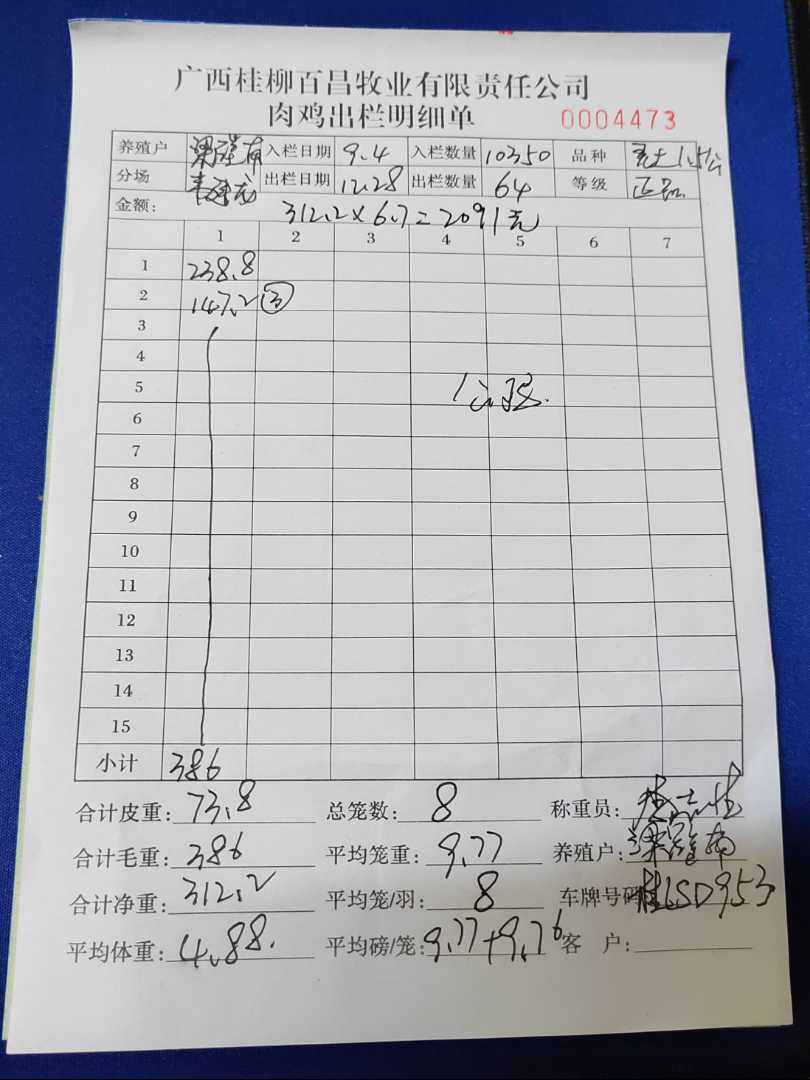 广西桂柳百昌牧业有限责任公司
肉鸡出栏明细单 0004473
养殖户 入栏日期 9.4 入栏数量 10350 品种 土1.5公
分场 出栏日期 12.28 出栏数量 64 等级 正品
金额: 312.2×6.7=2091元
1 2 3 4 5 6 7
1 238.8
2 147.2 ③
3
4
5 1公
6
7
8
9
10
11
12
13
14
15
小计 386
合计皮重: 73.8 总笼数: 8 称重员:
合计毛重: 386 平均笼重: 9.77 养殖户:
合计净重: 312.2 平均笼/羽: 8 车牌号码 桂LSD953
平均体重: 4.88. 平均磅/笼: 9.77+9.76 客 户: